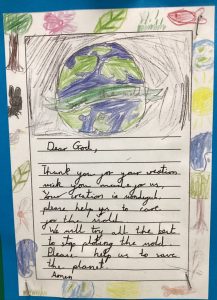 Dear God,
Thank you for your creation
wich you made for us.
Your creation is wonderful
please help us to care
for the world
We will try all the best
to stop pluting the world.
Please help us to save
the planet.
Amen